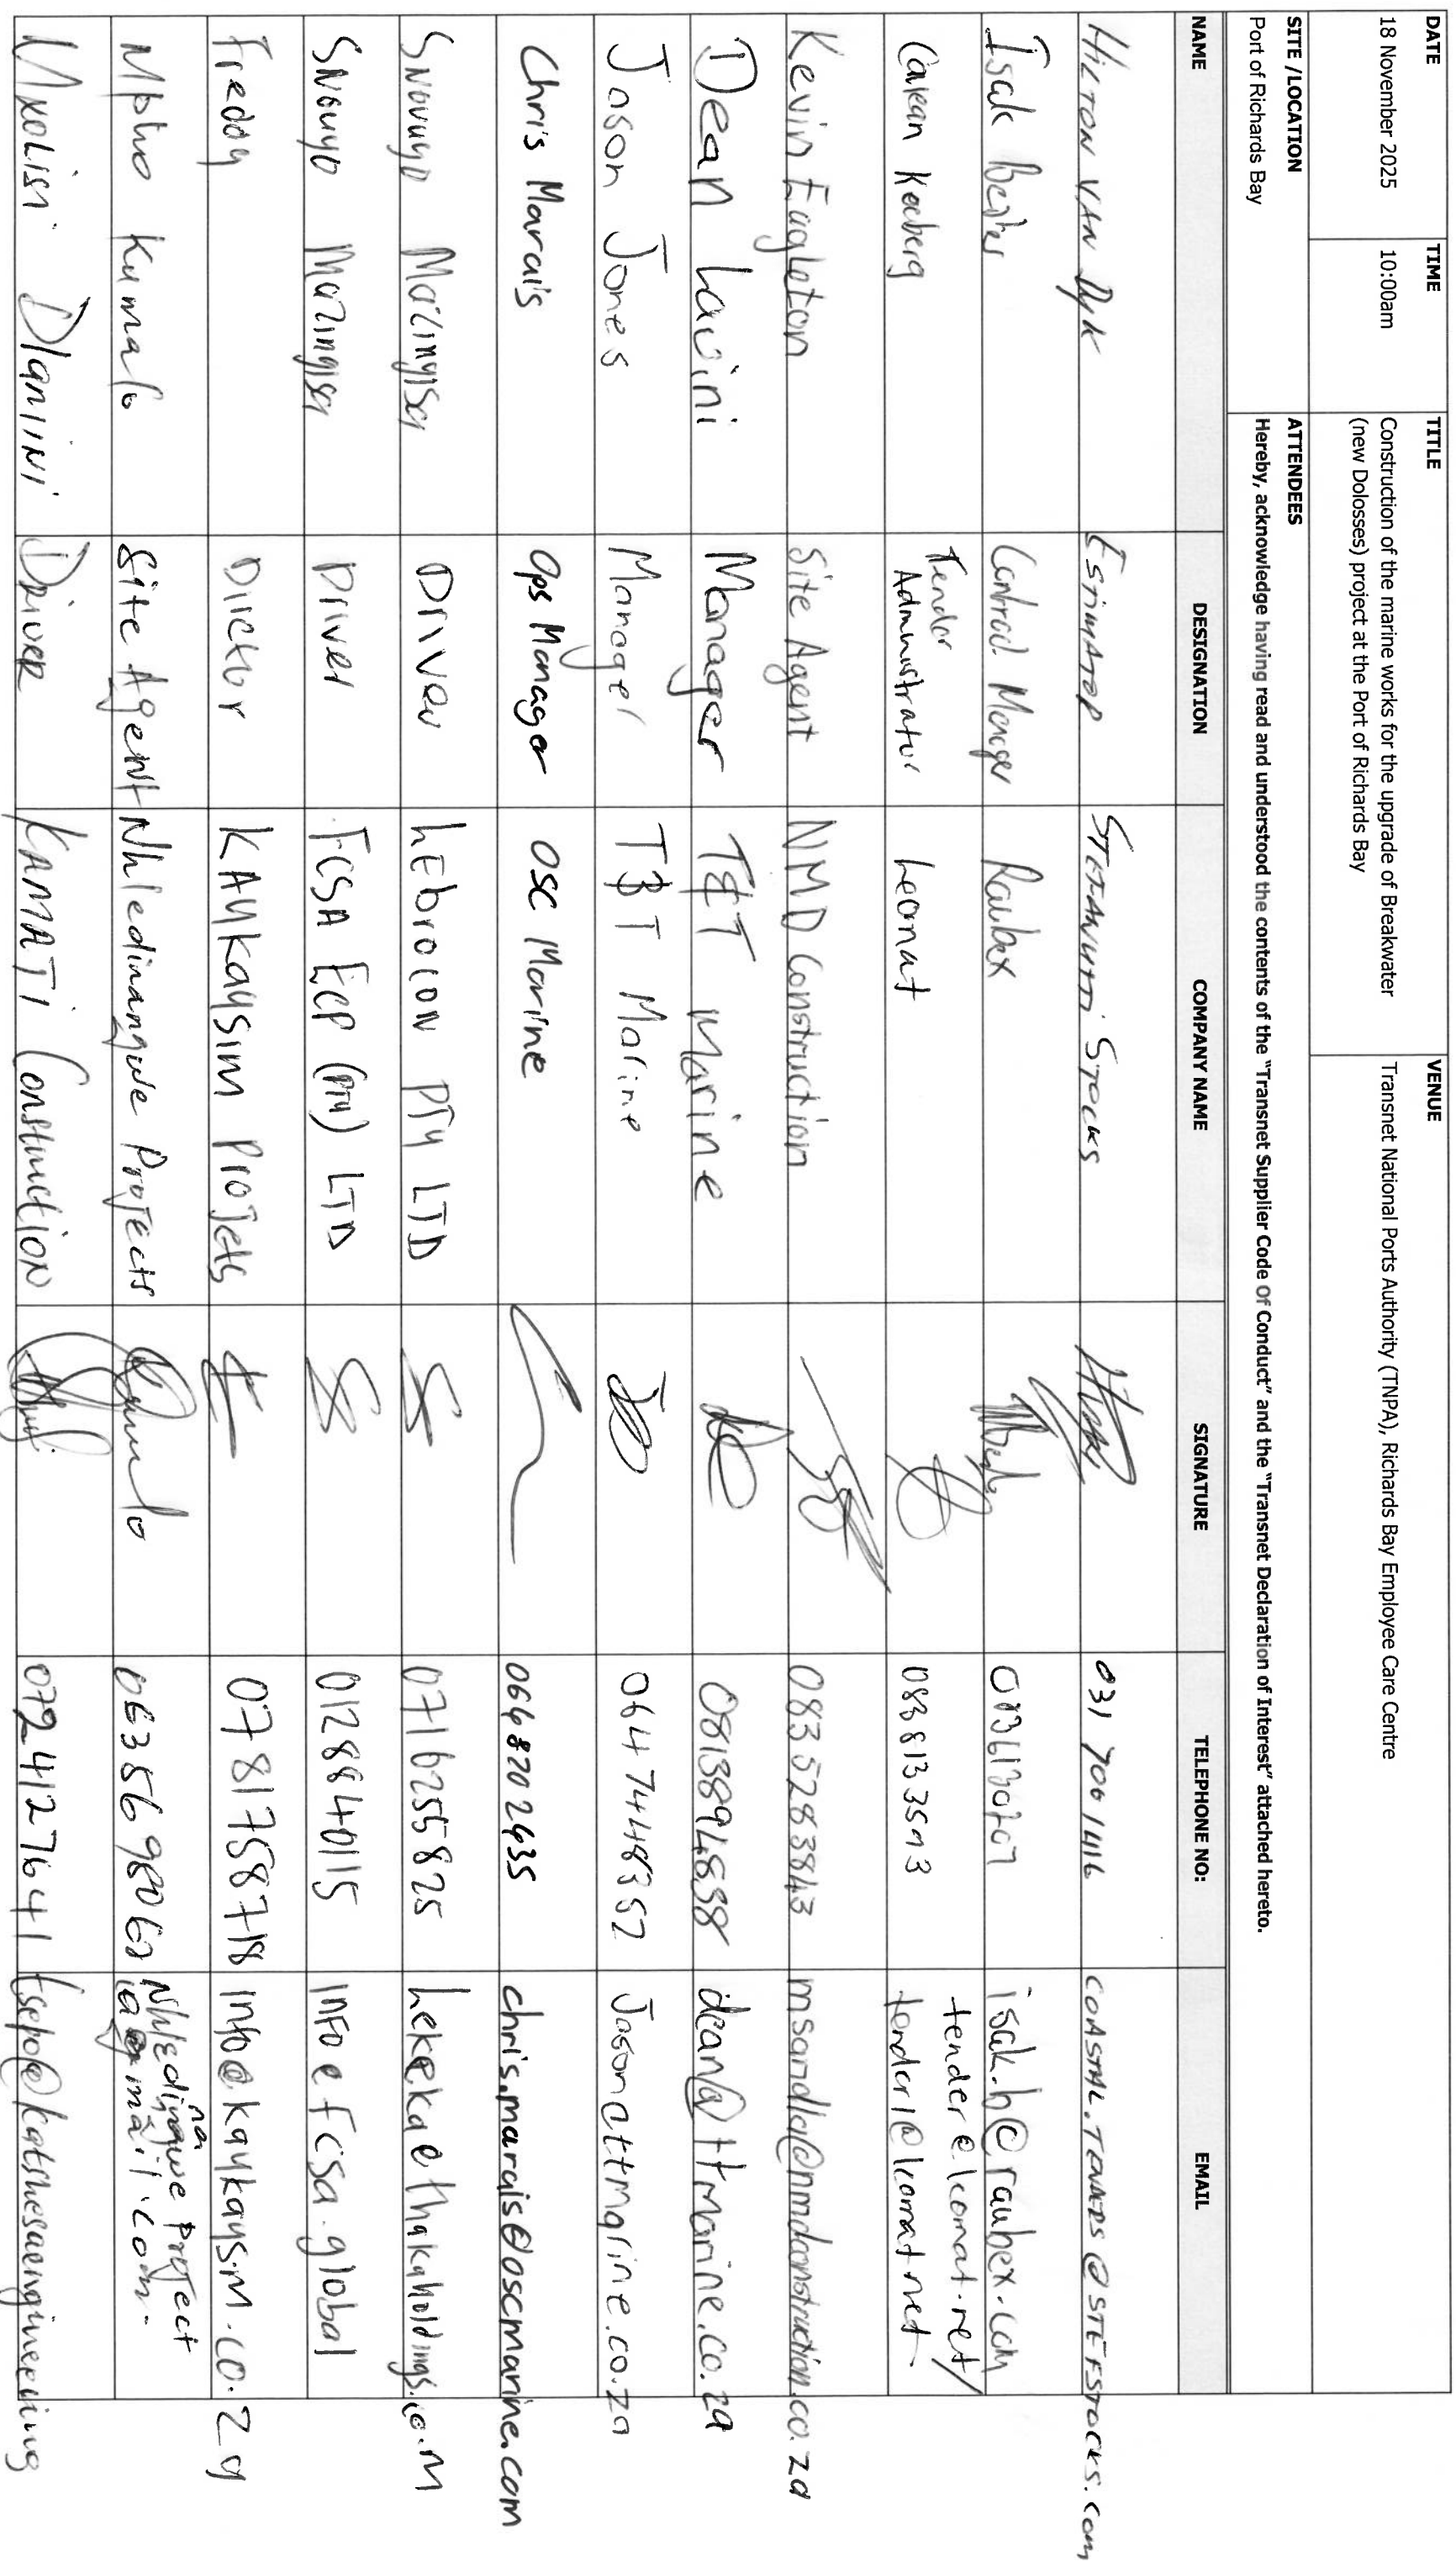 DATE TIME TITLE VENUE
18 November 2025 10:00am Construction of the marine works for the upgrade of Breakwater Transnet National Ports Authority (TNPA), Richards Bay Employee Care Centre
(new Dolosses) project at the Port of Richards Bay
SITE /LOCATION ATTENDEES
Port of Richards Bay Hereby, acknowledge having read and understood the contents of the "Transnet Supplier Code Of Conduct" and the "Transnet Declaration of Interest" attached hereto.
NAME DESIGNATION COMPANY NAME SIGNATURE TELEPHONE NO: EMAIL
HILTON VAN Dyk ESTIMATOR STEFANUTTI STOCKS 031 700 1416 COASTAL.TENDERS@STEFSTOCKS.com
Isak Bester Contract Manager Raubex isak.b@raubex.com
Koeberg Tender Administrator Leomat tender@leomat.net/
tender1@leomat.net
Kevin Eagleton Site Agent NMD Construction 0835283843 msandla@nmdconstruction.co.za
Dean Manager T&T Marine dean@ttmarine.co.za
Jason Jones Manager T&T Marine 0647448357 Jason@ttmarine.co.za
Chris Marais Ops Manager OSC Marine 0648202435 chris.marais@oscmarine.com
Snouyo Malingisa Driver hEbrocon PTY LTD 0716255825 hekeka@thakaholdings.co.m
Snouyo Malingisa Driver FCSA Ecp (PTY) LTD 0128840115 INFO@fcsa.global
Freddy Dirctor KAYKAYSIM ProJets 0781758718 Info@kaykaysim.co.za
Mpho Kumalo Site Agent Nhledinangwe Projects 0635698062 Nhledinangwe Project
mail.com
Mxolisi Dlamini DRIVER KAMATI Constuction 0724127641 tsepo@katshesaengineering